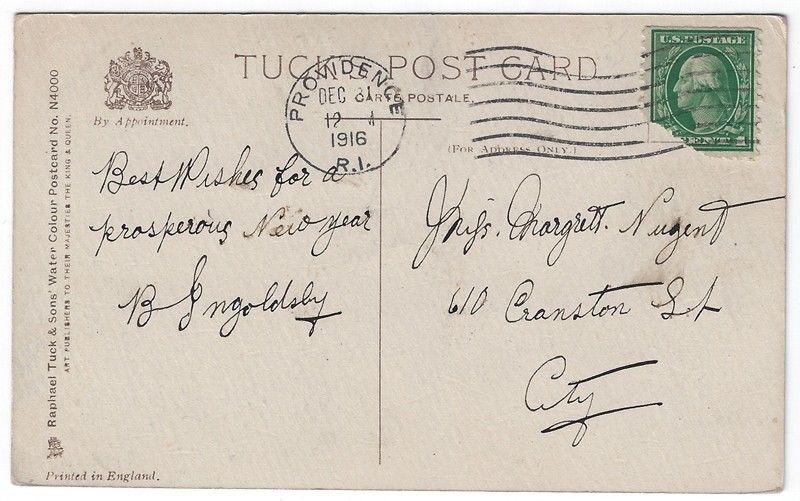 TUCK'S POST CARD
CARTE POSTALE.
(FOR ADDRESS ONLY.)
By Appointment.
PROVIDENCE
DEC 31
12 A
1916
R.I.
U.S. POSTAGE
1 CENT 1
Best Wishes for a
prosperous New year
B Ingoldsby
Miss. Margrett. Nugent
610 Cranston St
City
Raphael Tuck & Sons' Water Colour Postcard No. N4000
ART PUBLISHERS TO THEIR MAJESTIES THE KING & QUEEN.
Printed in England.